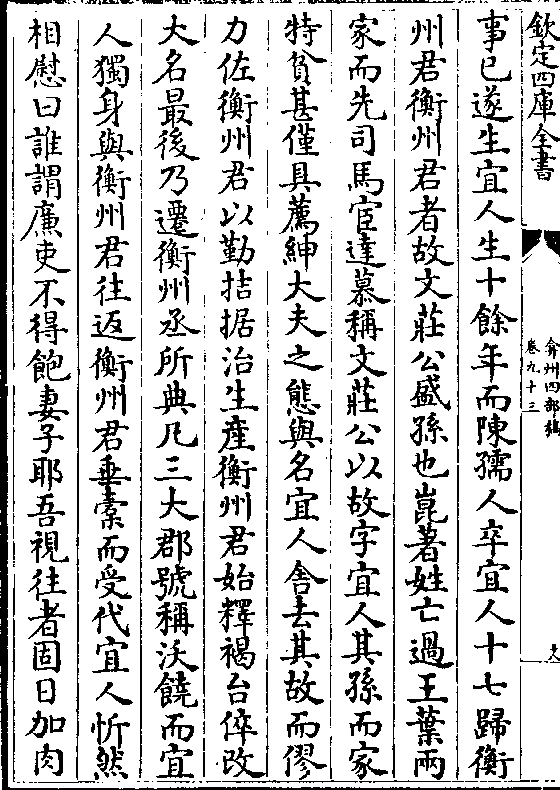 欽定四庫全書
弇州四部稿
卷九十三
事已遂生宜人生十餘年而陳孺人卒宜人十七歸衡
州君衡州君者故文莊公盛孫也崑著姓亡過王葉兩
家而先司馬宦達慕稱文莊公以故字宜人其孫而家
特貧甚僅具薦紳大夫之態與名宜人舍去其故而僇
力佐衡州君以勤拮据治生產衡州君始釋褐台倅改
大名最後乃遷衡州丞所典凡三大郡號稱沃饒而宜
人獨身與衡州君往返衡州君垂橐而受代宜人忻然
相慰曰誰謂廉吏不得飽妻子耶吾視往者固日加肉